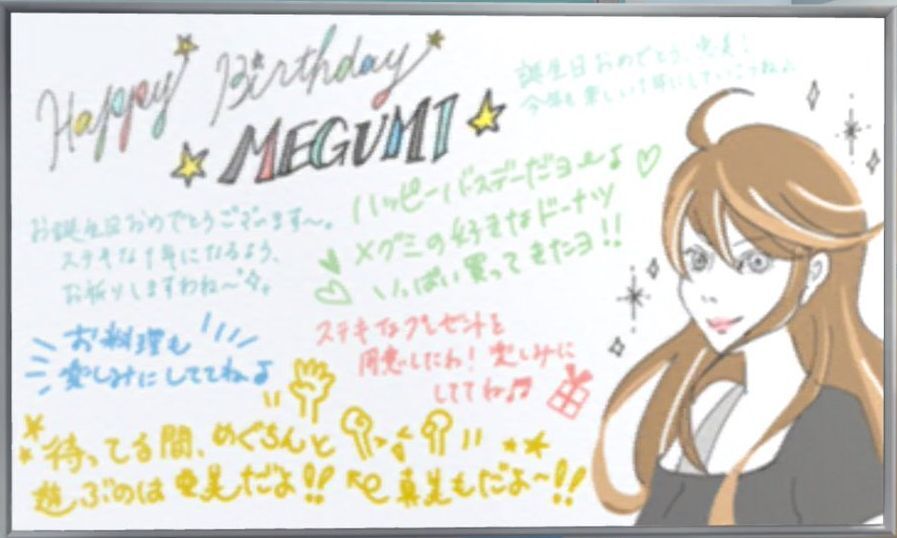 Happy Birthday
MEGUMI
誕生日おめでとう、恵美!
今年も楽しい1年にしていこうね♪
お誕生日おめでとうございます〜。
ステキな1年になるよう、
お祈りしますわね〜
ハッピーバースデーだヨ〜♪
メグミの好きなドーナツ
いっぱい買ってきたヨ!!
お料理も
楽しみにしててね♪
ステキなプレゼントを
用意したわ!楽しみに
しててね♫
待ってる間、めぐみんと
遊ぶのは亜美だよ!!
真美もだよ〜!!